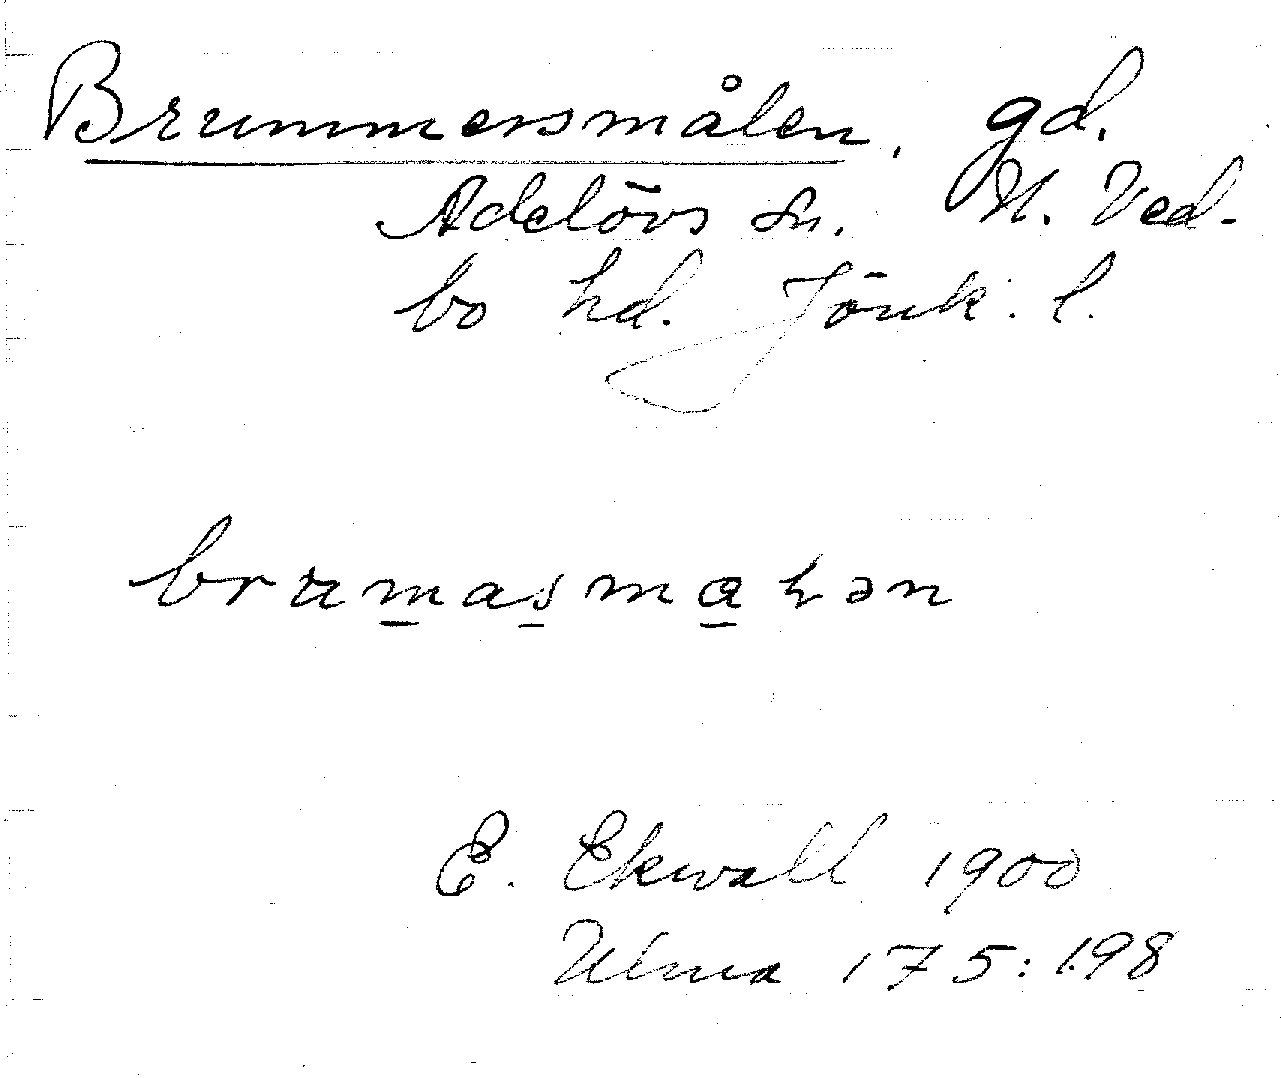 Brummersmålen, gd.
Adelövs sn. N. Ved-
bo hd. Jönk. l.
brumasmaɫən
E. Ekwall 1900
Ulma 175:198